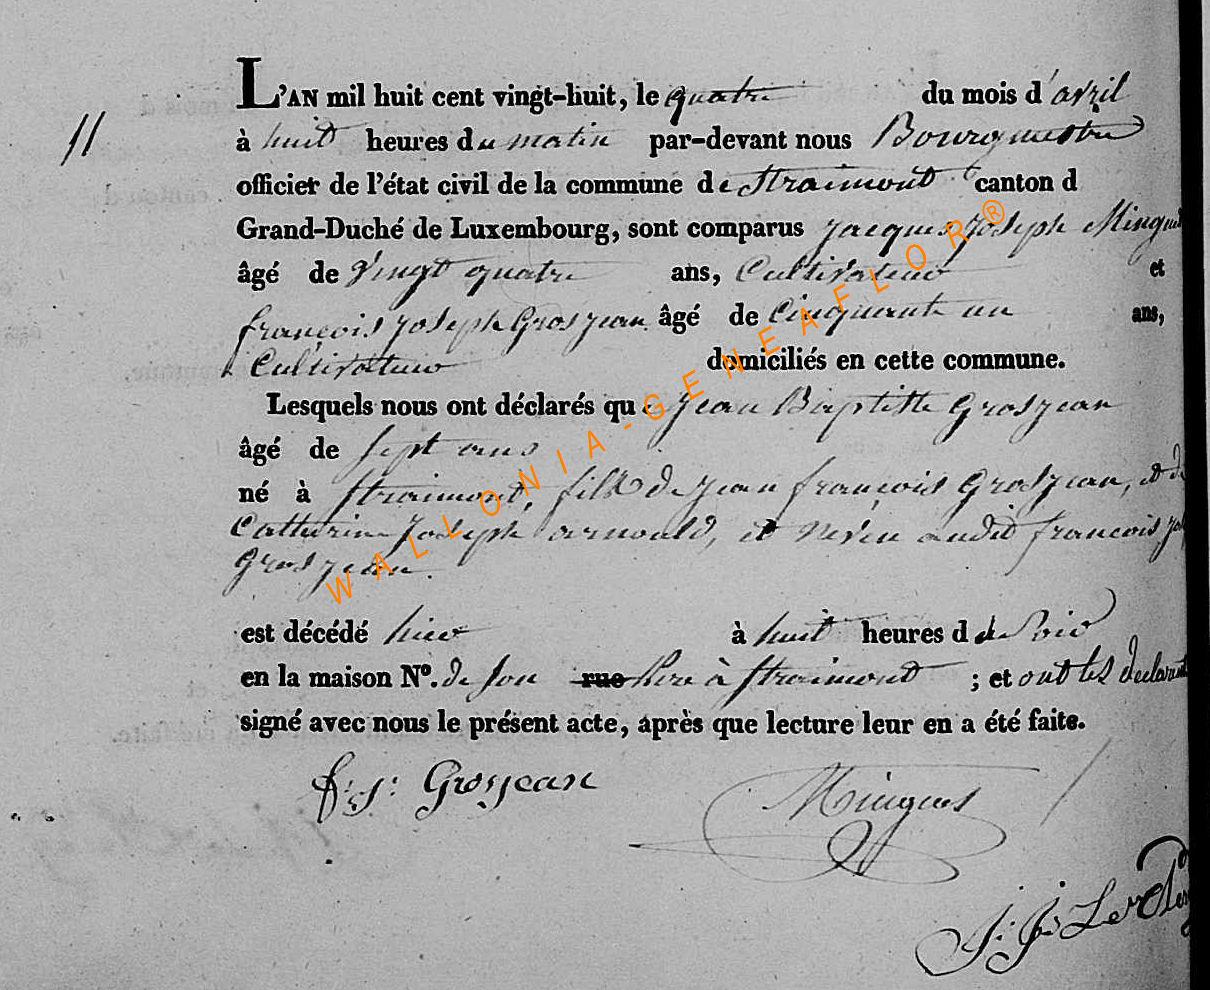 L'AN mil huit cent vingt-huit, le quatre du mois d'avril
11
à huit heures du matin par-devant nous Bourgmestre
officier de l'état civil de la commune de Straimont canton d
Grand-Duché de Luxembourg, sont comparus Jacques Joseph
âgé de vingt quatre ans, Cultivateur et
françois Joseph Grosjean âgé de Cinquante un ans,
Cultivateur domiciliés en cette commune.
Lesquels nous ont déclarés que Jean Baptiste Grosjean
âgé de sept ans
né à Straimont, fils de Jean françois Grosjean, et de
Catherine Joseph arnould, et neveu audit francois
Grosjean.
est décédé hier à huit heures d du Soir
en la maison Nº. de son rue Pere à Straimont ; et ont les declarants
signé avec nous le présent acte, après que lecture leur en a été faite.
f: j: Grosjean
Minguet
WALLONIA-GENEAFLOR®